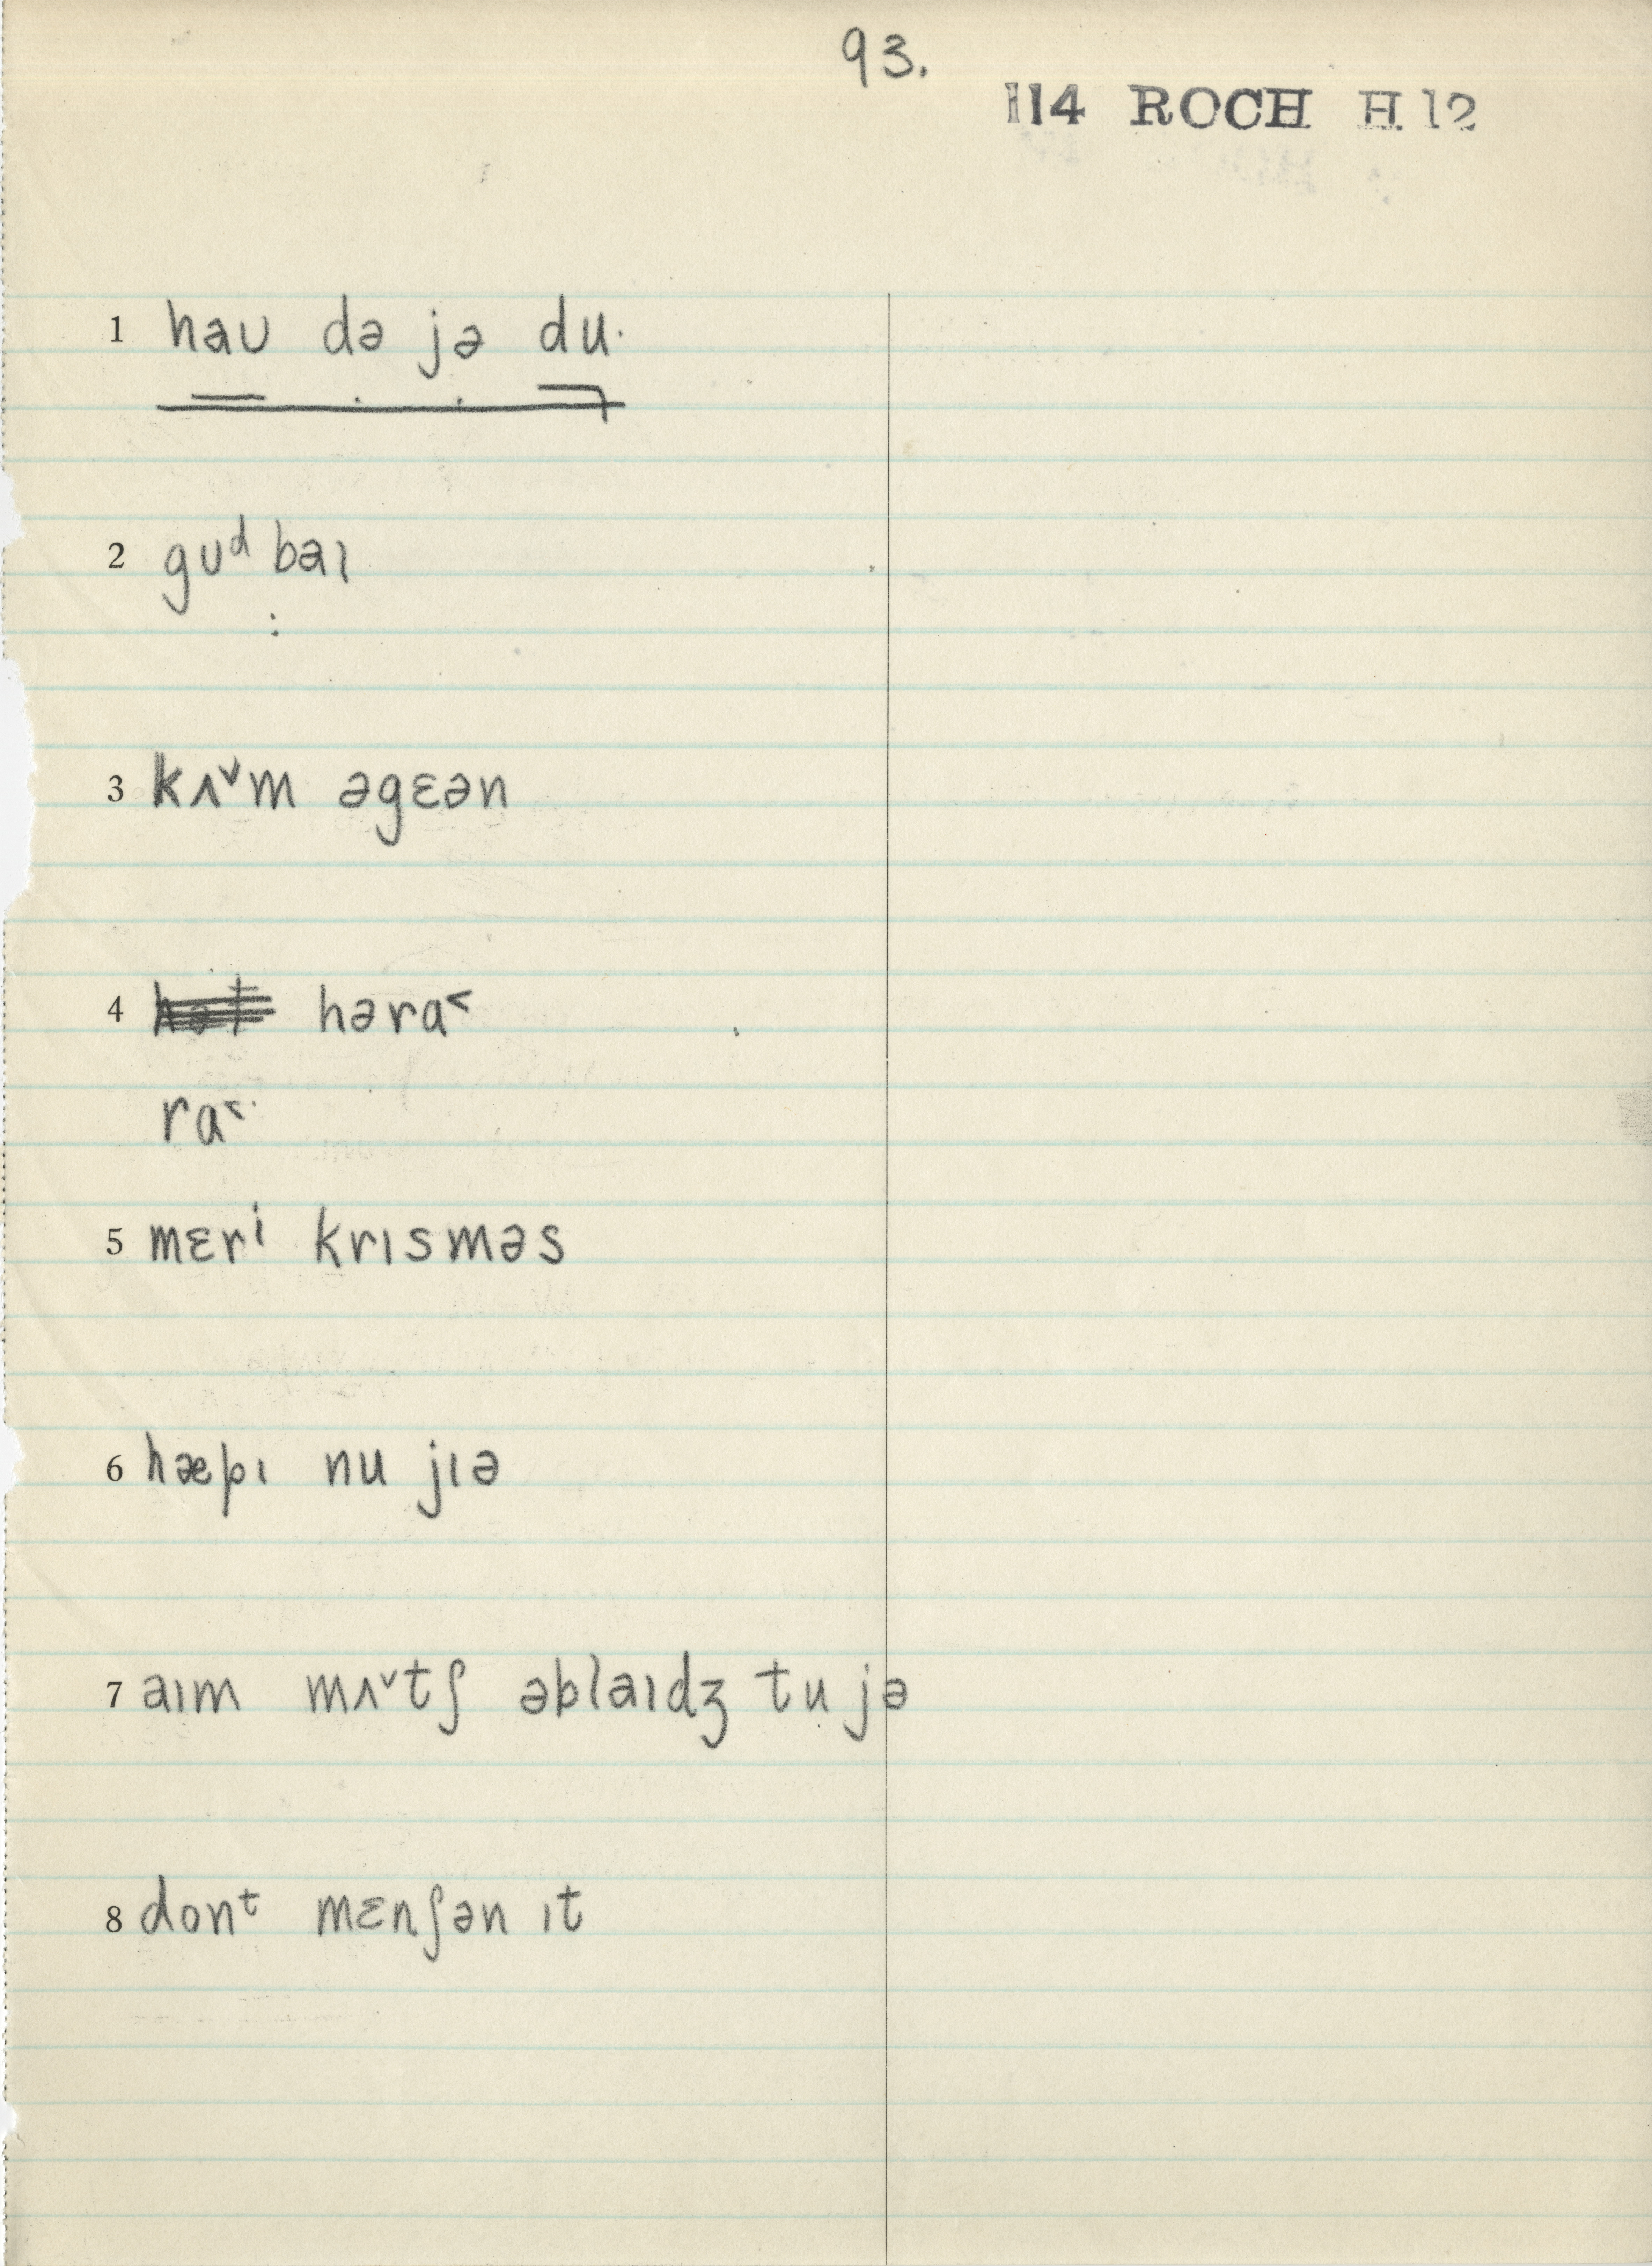 93.
114 ROCH H 12
1 haʊ də jə du·
2 gʊᵈ baɪ
3 kʌ˅m əgɛən
4 həra˂
ra˂·
5 mɛrⁱ krɪsməs
6 hæpɪ nu jɪə
7 aɪm mʌ˅tʃ əblaɪdʒ tu jə
8 donᵗ mɛnʃən ɪt